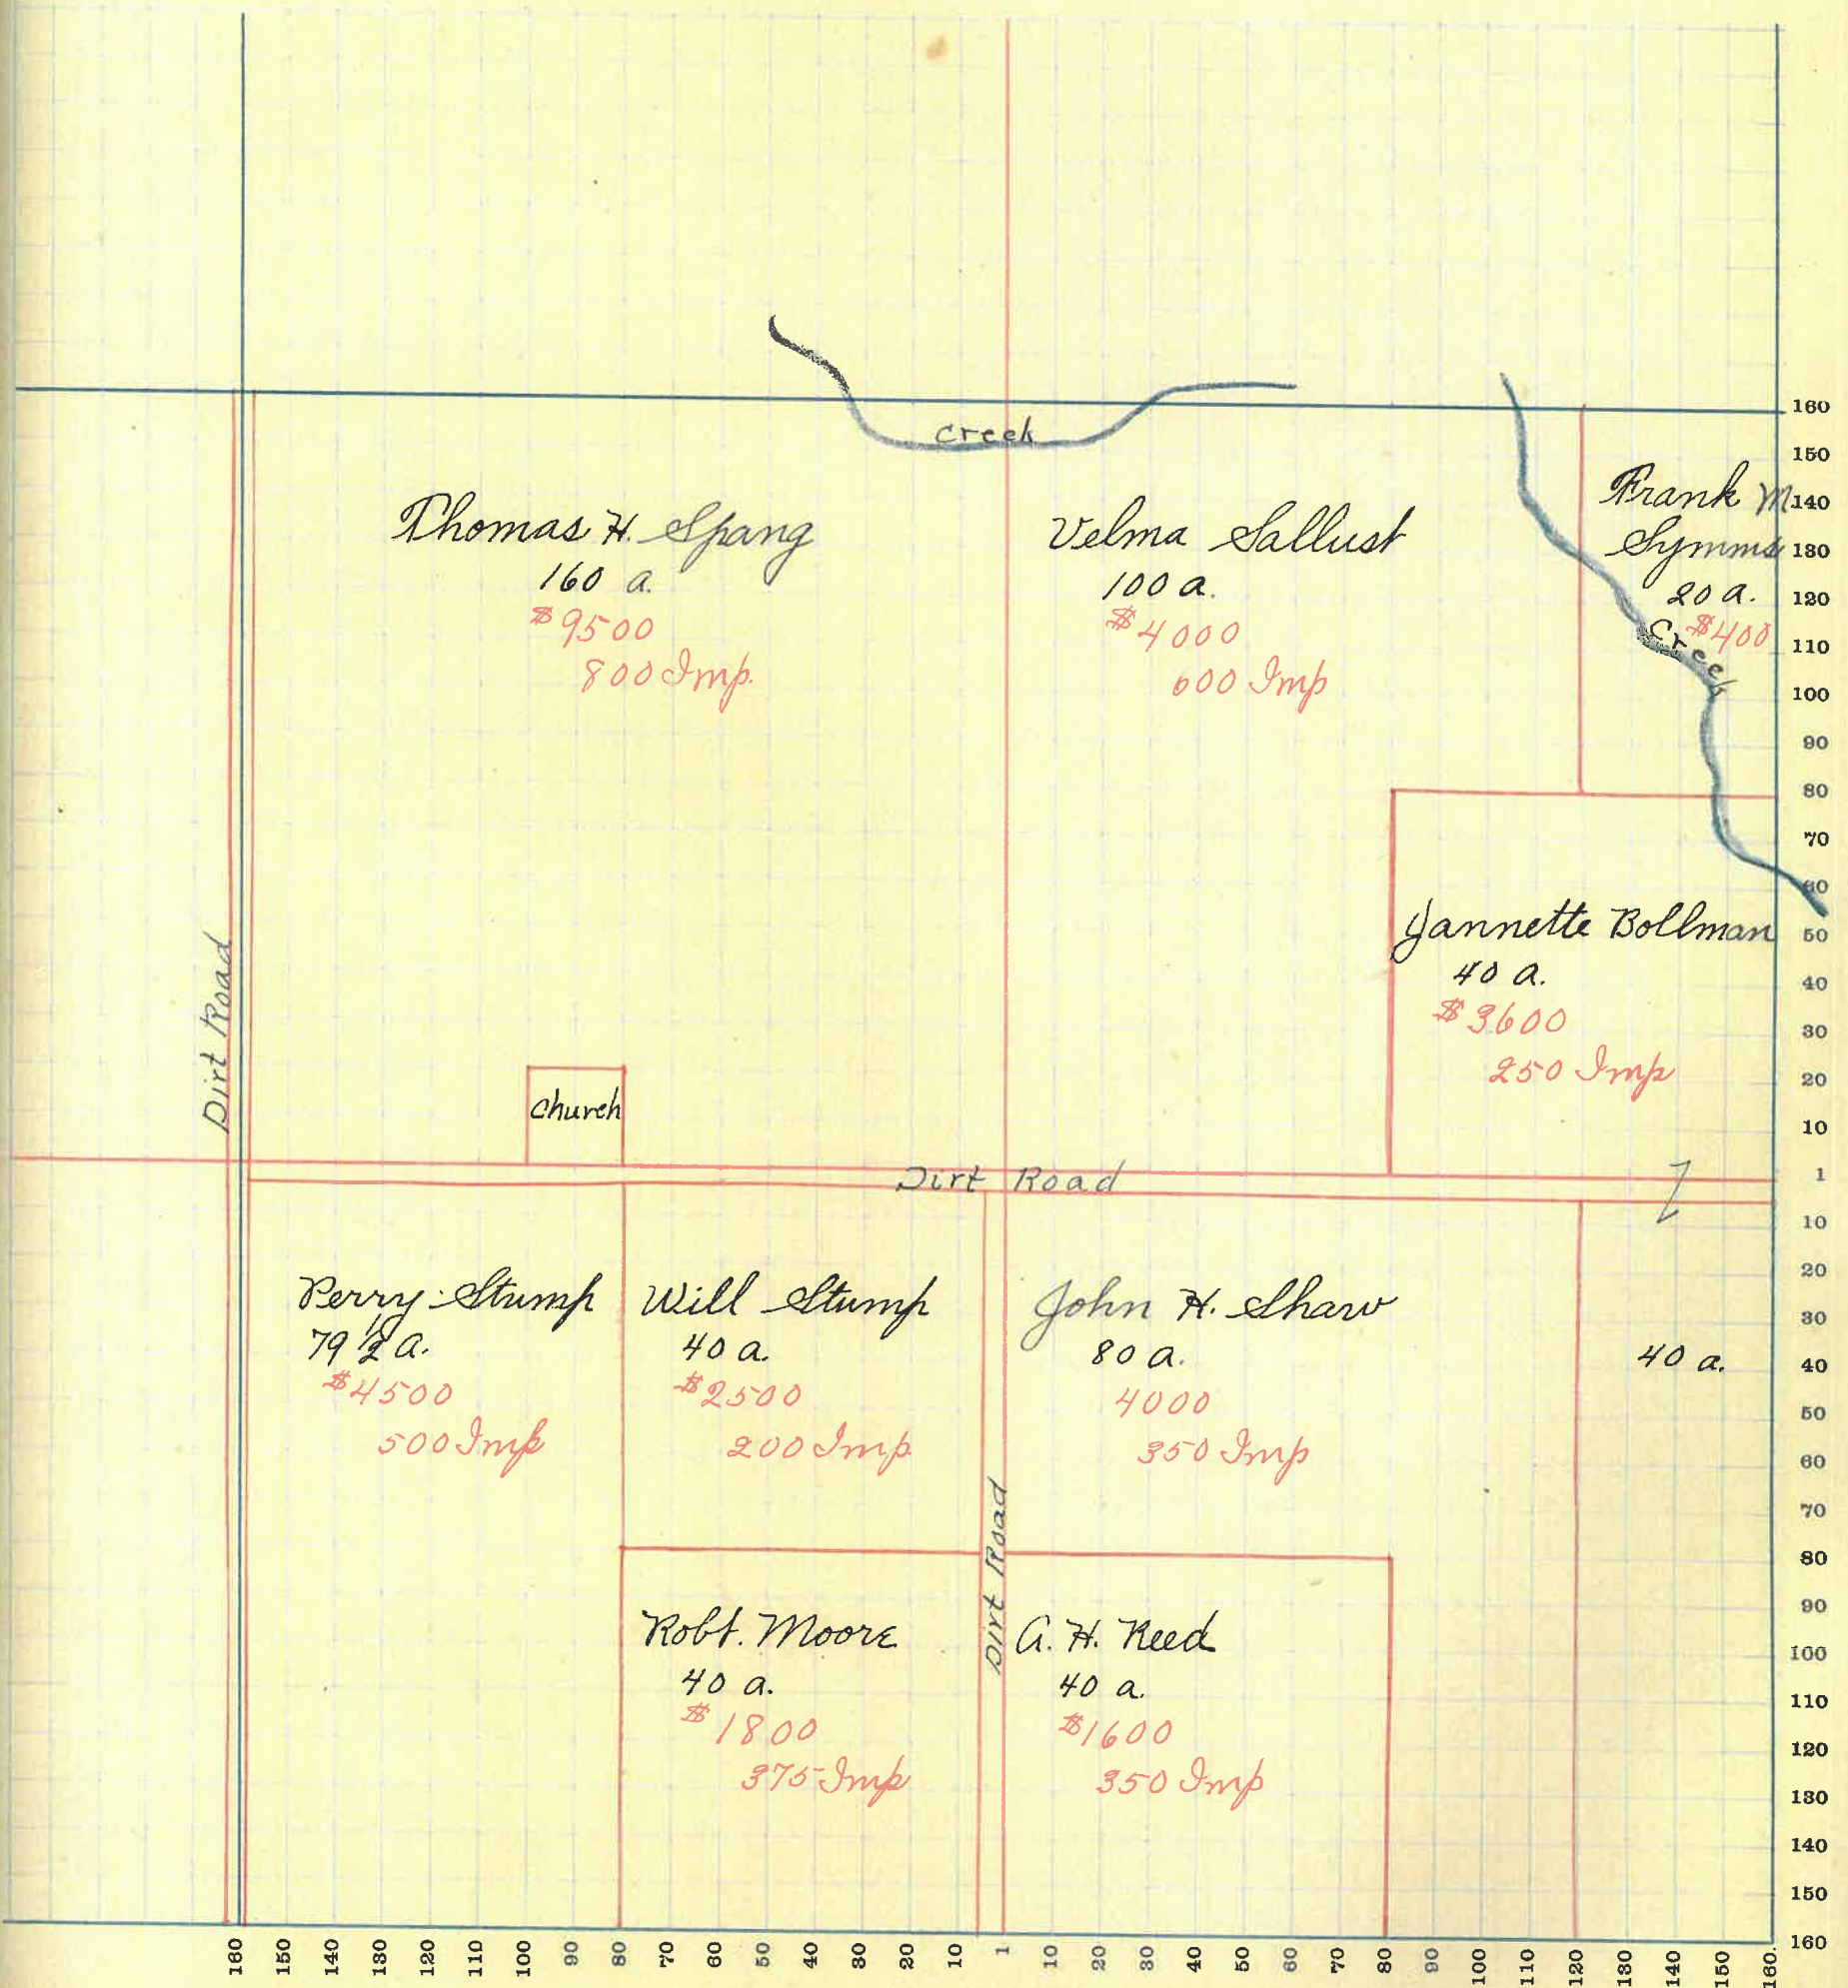 Creek
Thomas H. Spang
160 a.
$9500
800 Imp.
Velma Sallust
100 a.
$4000
600 Imp
Frank M
Symms
20 a.
$400
Creek
Jannette Bollman
40 a.
$3600
250 Imp
Dirt Road
Church
Dirt Road
Perry Stump
79 1/2 a.
$4500
500 Imp
Will Stump
40 a.
$2500
200 Imp.
John H. Shaw
80 a.
4000
350 Imp
40 a.
Dirt Road
Robt. Moore
40 a.
$1800
375 Imp
A. H. Reed
40 a.
$1600
350 Imp
160
150
140
130
120
110
100
90
80
70
60
50
40
30
20
10
1
10
20
30
40
50
60
70
80
90
100
110
120
130
140
150
160
160
150
140
130
120
110
100
90
80
70
60
50
40
30
20
10
1
10
20
30
40
50
60
70
80
90
100
110
120
130
140
150
160.